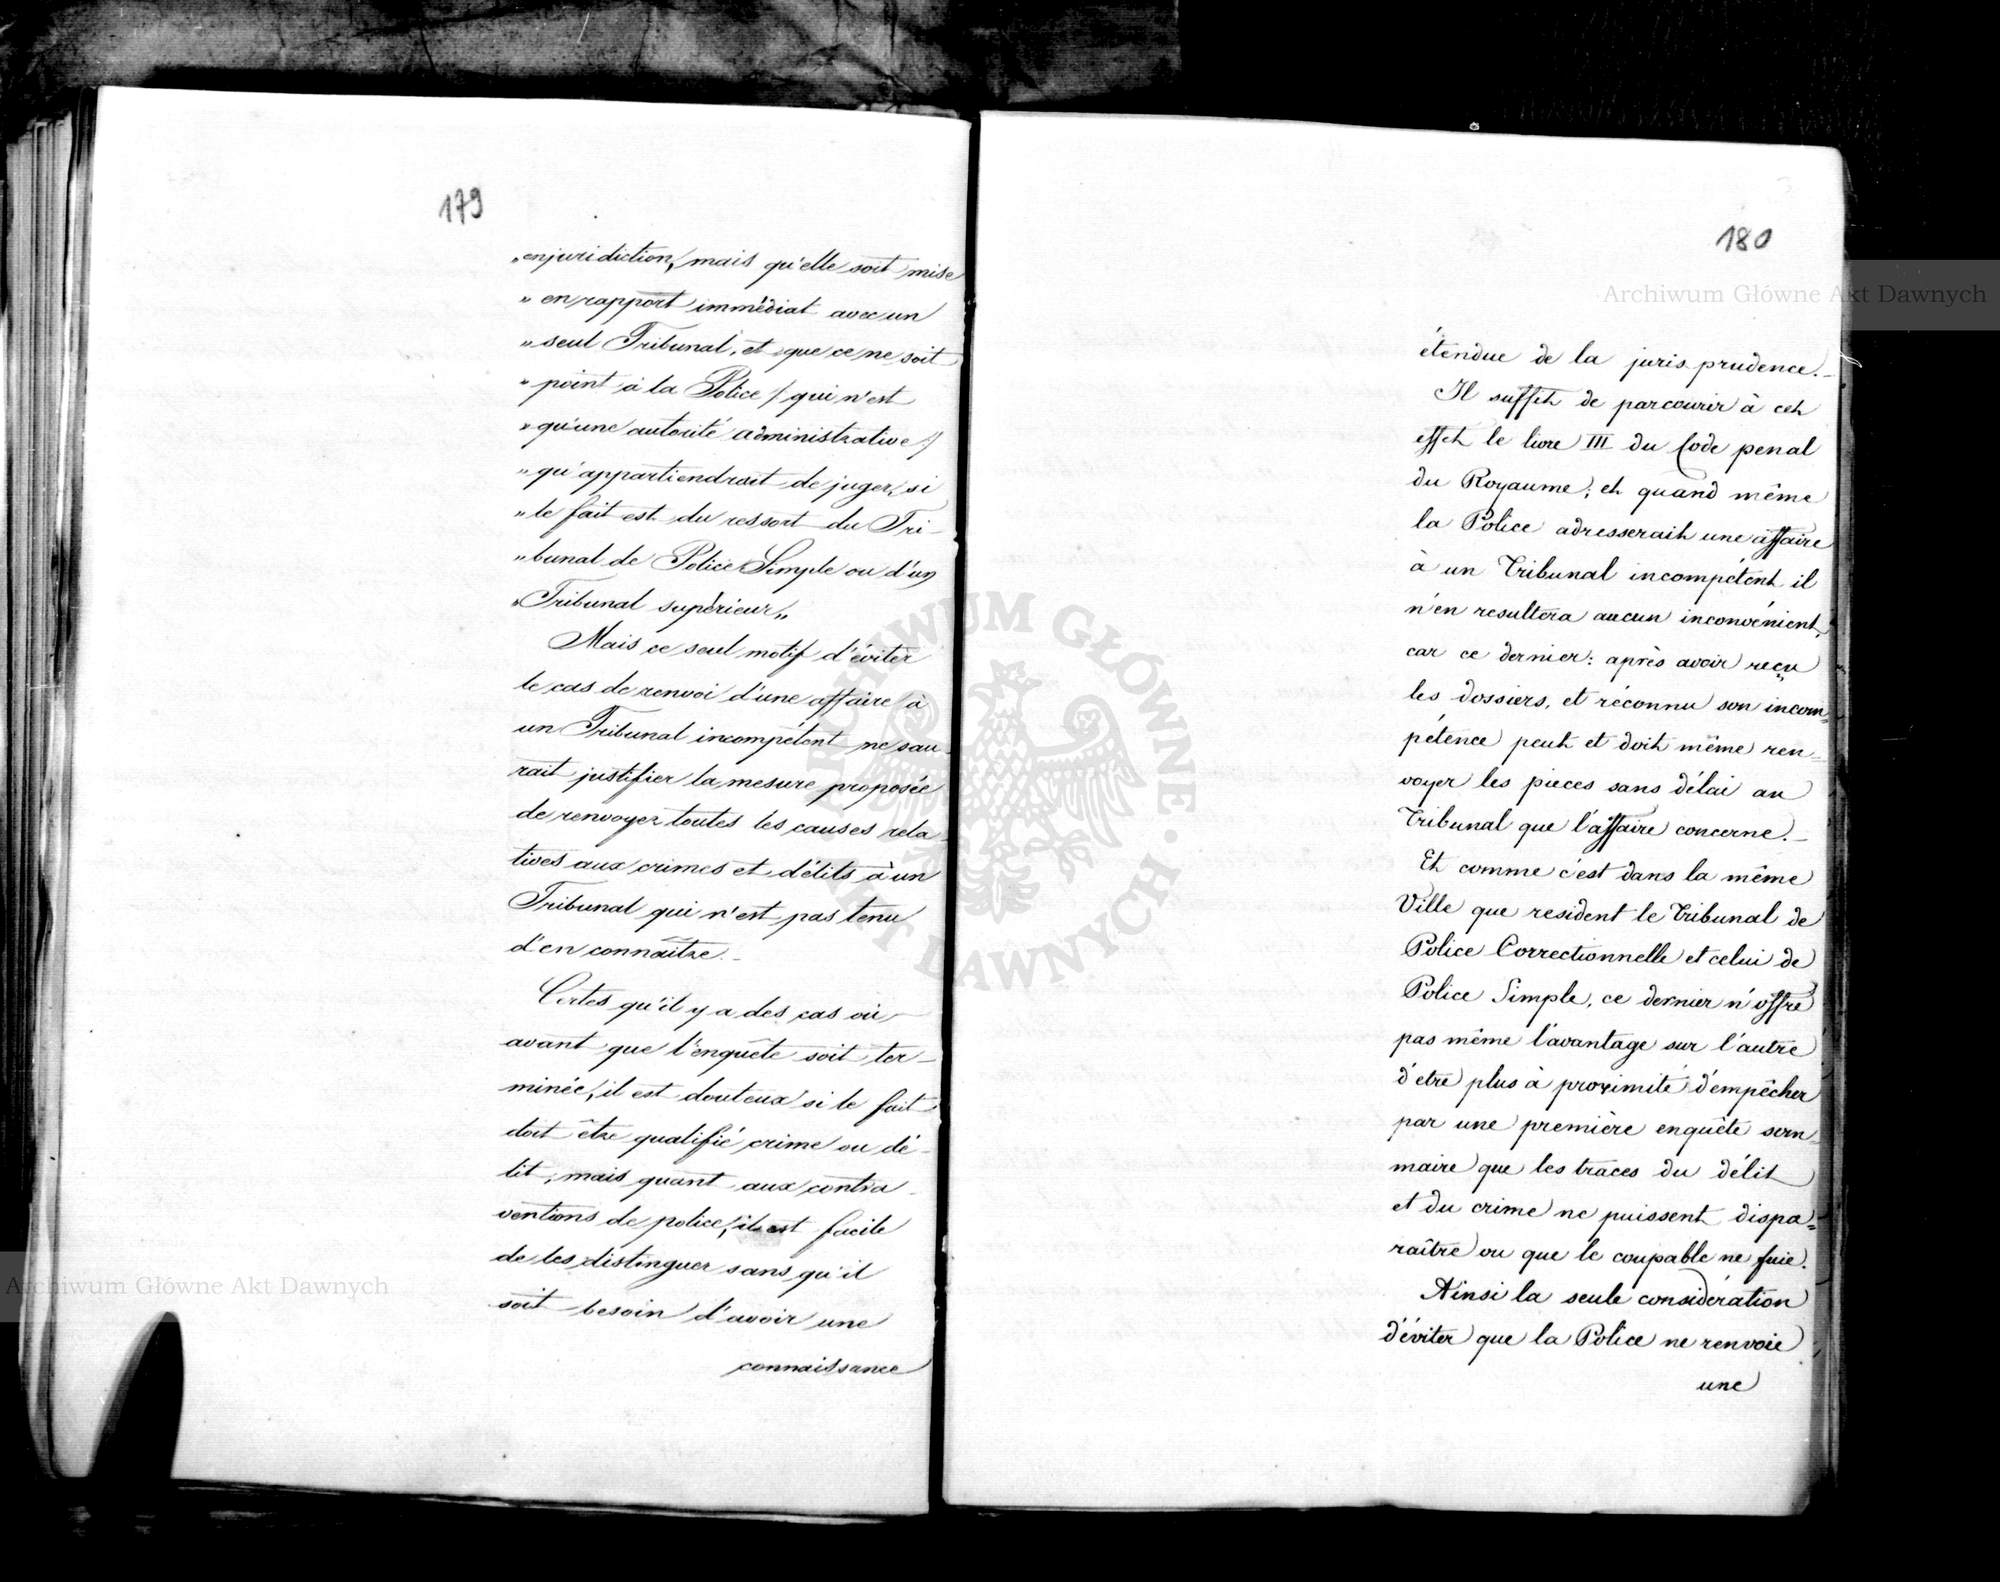 179
„enjuridiction, mais qu'elle soit mise
" en rapport immédiat avec un
" seul Tribunal, et que ce ne soit
" point à la Police / qui n'est
" qu'une autorité administrative /
" qu'appartiendrait de juger, si
" le fait est du ressort du Tri-
" bunal de Police Simple ou d'un
" Tribunal supérieur„
Mais ce seul motif d'éviter
le cas de renvoi d'une affaire à
un Tribunal incompétent ne sau-
rait justifier la mesure proposée
de renvoyer toutes les causes rela-
tives aux crimes et délits à un
Tribunal qui n'est pas tenu
d'en connaître. -
Certes qu'il y a des cas où,
avant que l'enquête soit ter-
minée, il est douteux si le fait
doit être qualifié crime ou dé-
lit, mais quant aux contra-
ventions de police, il est facile
de les distinguer sans qu'il
soit besoin d'avoir une
connaissance
180
étendue de la juris prudence. -
Il suffit de parcourir à cet
effet le livre III du Code penal
du Royaume; et quand même
la Police adresserait une affaire
à un Tribunal incompétent il
n'en resultera aucun inconvénient,
car ce dernier: après avoir reçu
les dossiers, et réconnu son incom=
pétence peut et doit même ren-
voyer les pieces sans délai au
Tribunal que l'affaire concerne. -
Et comme c'est dans la même
Ville que resident le Tribunal de
Police Correctionnelle et celui de
Police Simple, ce dernier n'offre
pas même l'avantage sur l'autre
d'etre plus à proximité d'empêcher
par une première enquête som-
maire que les traces du délit
et du crime ne puissent dispa=
raître ou que le coupable ne fuie.
Ainsi la seule considération
d'éviter que la Police ne renvoie
une
Archiwum Główne Akt Dawnych
Archiwum Główne Akt Dawnych
ARCHIWUM GŁÓWNE AKT DAWNYCH ·